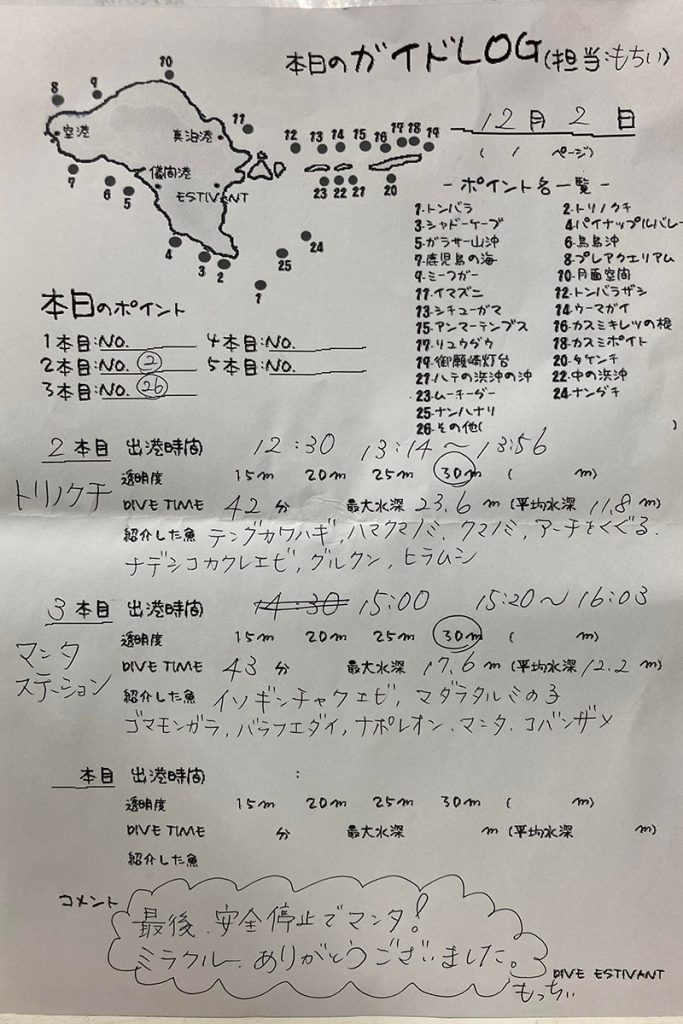 本日のガイドLOG(担当:もちい)
12月 2 日
( / ページ)
10
9
8
空港
真泊港
11
12 13 14 15 16 17 18 19
儀間港
ESTIVANT
7
6
5
23 22 21
20
4
3
2
24
25
1
-ポイント名一覧-
1.トンバラ 2.トリノクチ
3.シャドーケーブ 4.パイナップルバレー
5.ガラサー山沖 6.鳥島沖
7.鹿児島の海 8.プレアクエリアム
9.ミーフガー 10.月面空間
11.イマズニ 12.トンバラザシ
13.シチューガマ 14.ウーマガイ
15.アンマーテンプス 16.カスミキレツの根
17.リュウダウ 18.カスミポイト
19.御願崎灯台 20.タケンチ
21.ハテの浜沖の沖 22.中の浜沖
23.ムーチーダー 24.ナンダキ
25.ナンハナリ
26.その他( )
本日のポイント
1本目:NO. 4本目:NO.
2本目:NO. 2 5本目:NO.
3本目:NO. 26
2 本目 出港時間 12:30 13:14〜13:56
トリノクチ
透明度 15m 20m 25m 30m ( m)
DIVE TIME 42 分 最大水深 23.6 m (平均水深 11.8 m)
紹介した魚 テングカワハギ,ハマクマノミ,クマノミ,アーチをくぐる.
ナデシコカクレエビ,グルクン,ヒラムシ
3 本目 出港時間 14:30 15:00 15:20〜16:03
マンタ
ステーション
透明度 15m 20m 25m 30m ( m)
DIVE TIME 43 分 最大水深 17.6 m (平均水深 12.2 m)
紹介した魚 イソギンチャクエビ,マダラタルミの子
ゴマモンガラ,バラフエダイ,ナポレオン、マンタ.コバンザメ
本目 出港時間 :
透明度 15m 20m 25m 30m ( m)
DIVE TIME 分 最大水深 m (平均水深 m)
紹介した魚
コメント
最後、安全停止でマンタ!
ミラクル、ありがとうございました。
もっちぃ
DIVE ESTIVANT